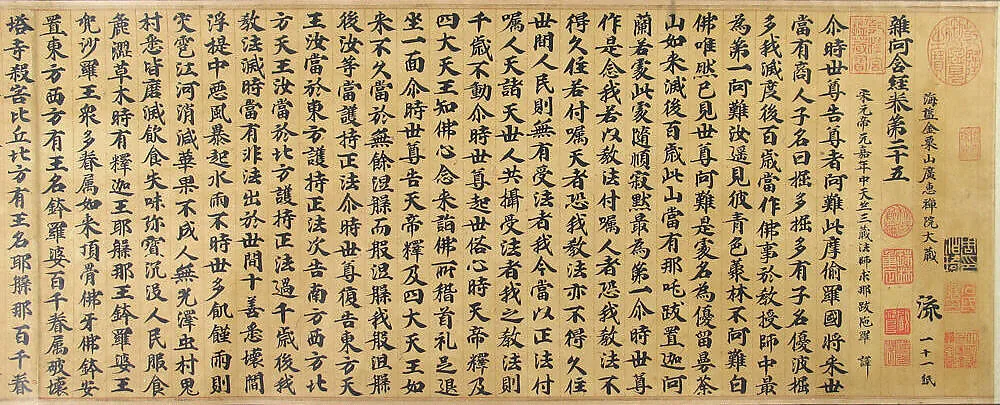 海鹽金粟山廣惠禪院大藏 流 一十一紙
雜阿含經卷第二十五
宋元帝元嘉年中天竺三藏法師求那跋陁羅 譯
尒時世尊告尊者阿難此摩偷羅國將来世
當有商人子名曰掘多掘多有子名優波掘
多我滅度後百歲當作佛事於教授師中最
為第一阿難汝遥見彼青色叢林不阿難白
佛唯然已見世尊阿難是處名為優留曼荼
山如来滅後百歲此山當有那吒跋置迦阿
蘭若處此處隨順寂默最為第一尒時世尊
作是念我若以教法付囑人者恐我教法不
得久住若付囑天者恐我教法亦不得久住
世間人民則無有受法者我今當以正法付
囑人天諸天世人共攝受法者我之教法則
千歲不動尒時世尊起世俗心時天帝釋及
四大天王知佛心念来詣佛所稽首礼足退
坐一面尒時世尊告天帝釋及四大天王如
来不久當於無餘涅槃而般涅槃我般涅槃
後汝等當護持正法尒時世尊復告東方天
王汝當於東方護持正法次告南方西方北
方天王汝當於北方護持正法過千歲後我
教法滅時當有非法出於世間十善悉壞閻
浮提中惡風暴起水雨不時世多飢饉雨則
灾雹江河消滅華果不成人無光澤虫村鬼
村悉皆磨滅飲食失味珎寳沉没人民服食
麁澀草木時有釋迦王耶槃那王鉢羅婆王
兜沙羅王衆多眷属如来頂骨佛牙佛鉢安
置東方西方有王名鉢羅婆百千眷属破壞
塔寺殺害比丘北方有王名耶槃那百千眷